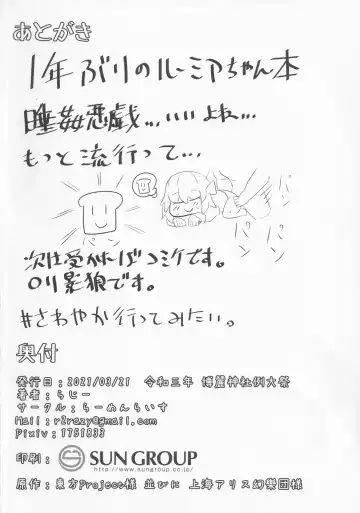 あとがき
1年ぶりのルーミアちゃん本
睡姦悪戯...いいよね...
もっと流行って...
パン
パン
パン
次は受かればコミケです。
ロリ影狼です。
#さわやか行ってみたい。
奥付
発行日：2021/03/21　令和三年 博麗神社例大祭
著者：らじー
サークル：らーめんらいす
Mail：r2razy@gmail.com
Pixiv：1751833
印刷：SUN GROUP
www.sungroup.co.jp/
原作：東方Project様 並びに 上海アリス幻樂団様